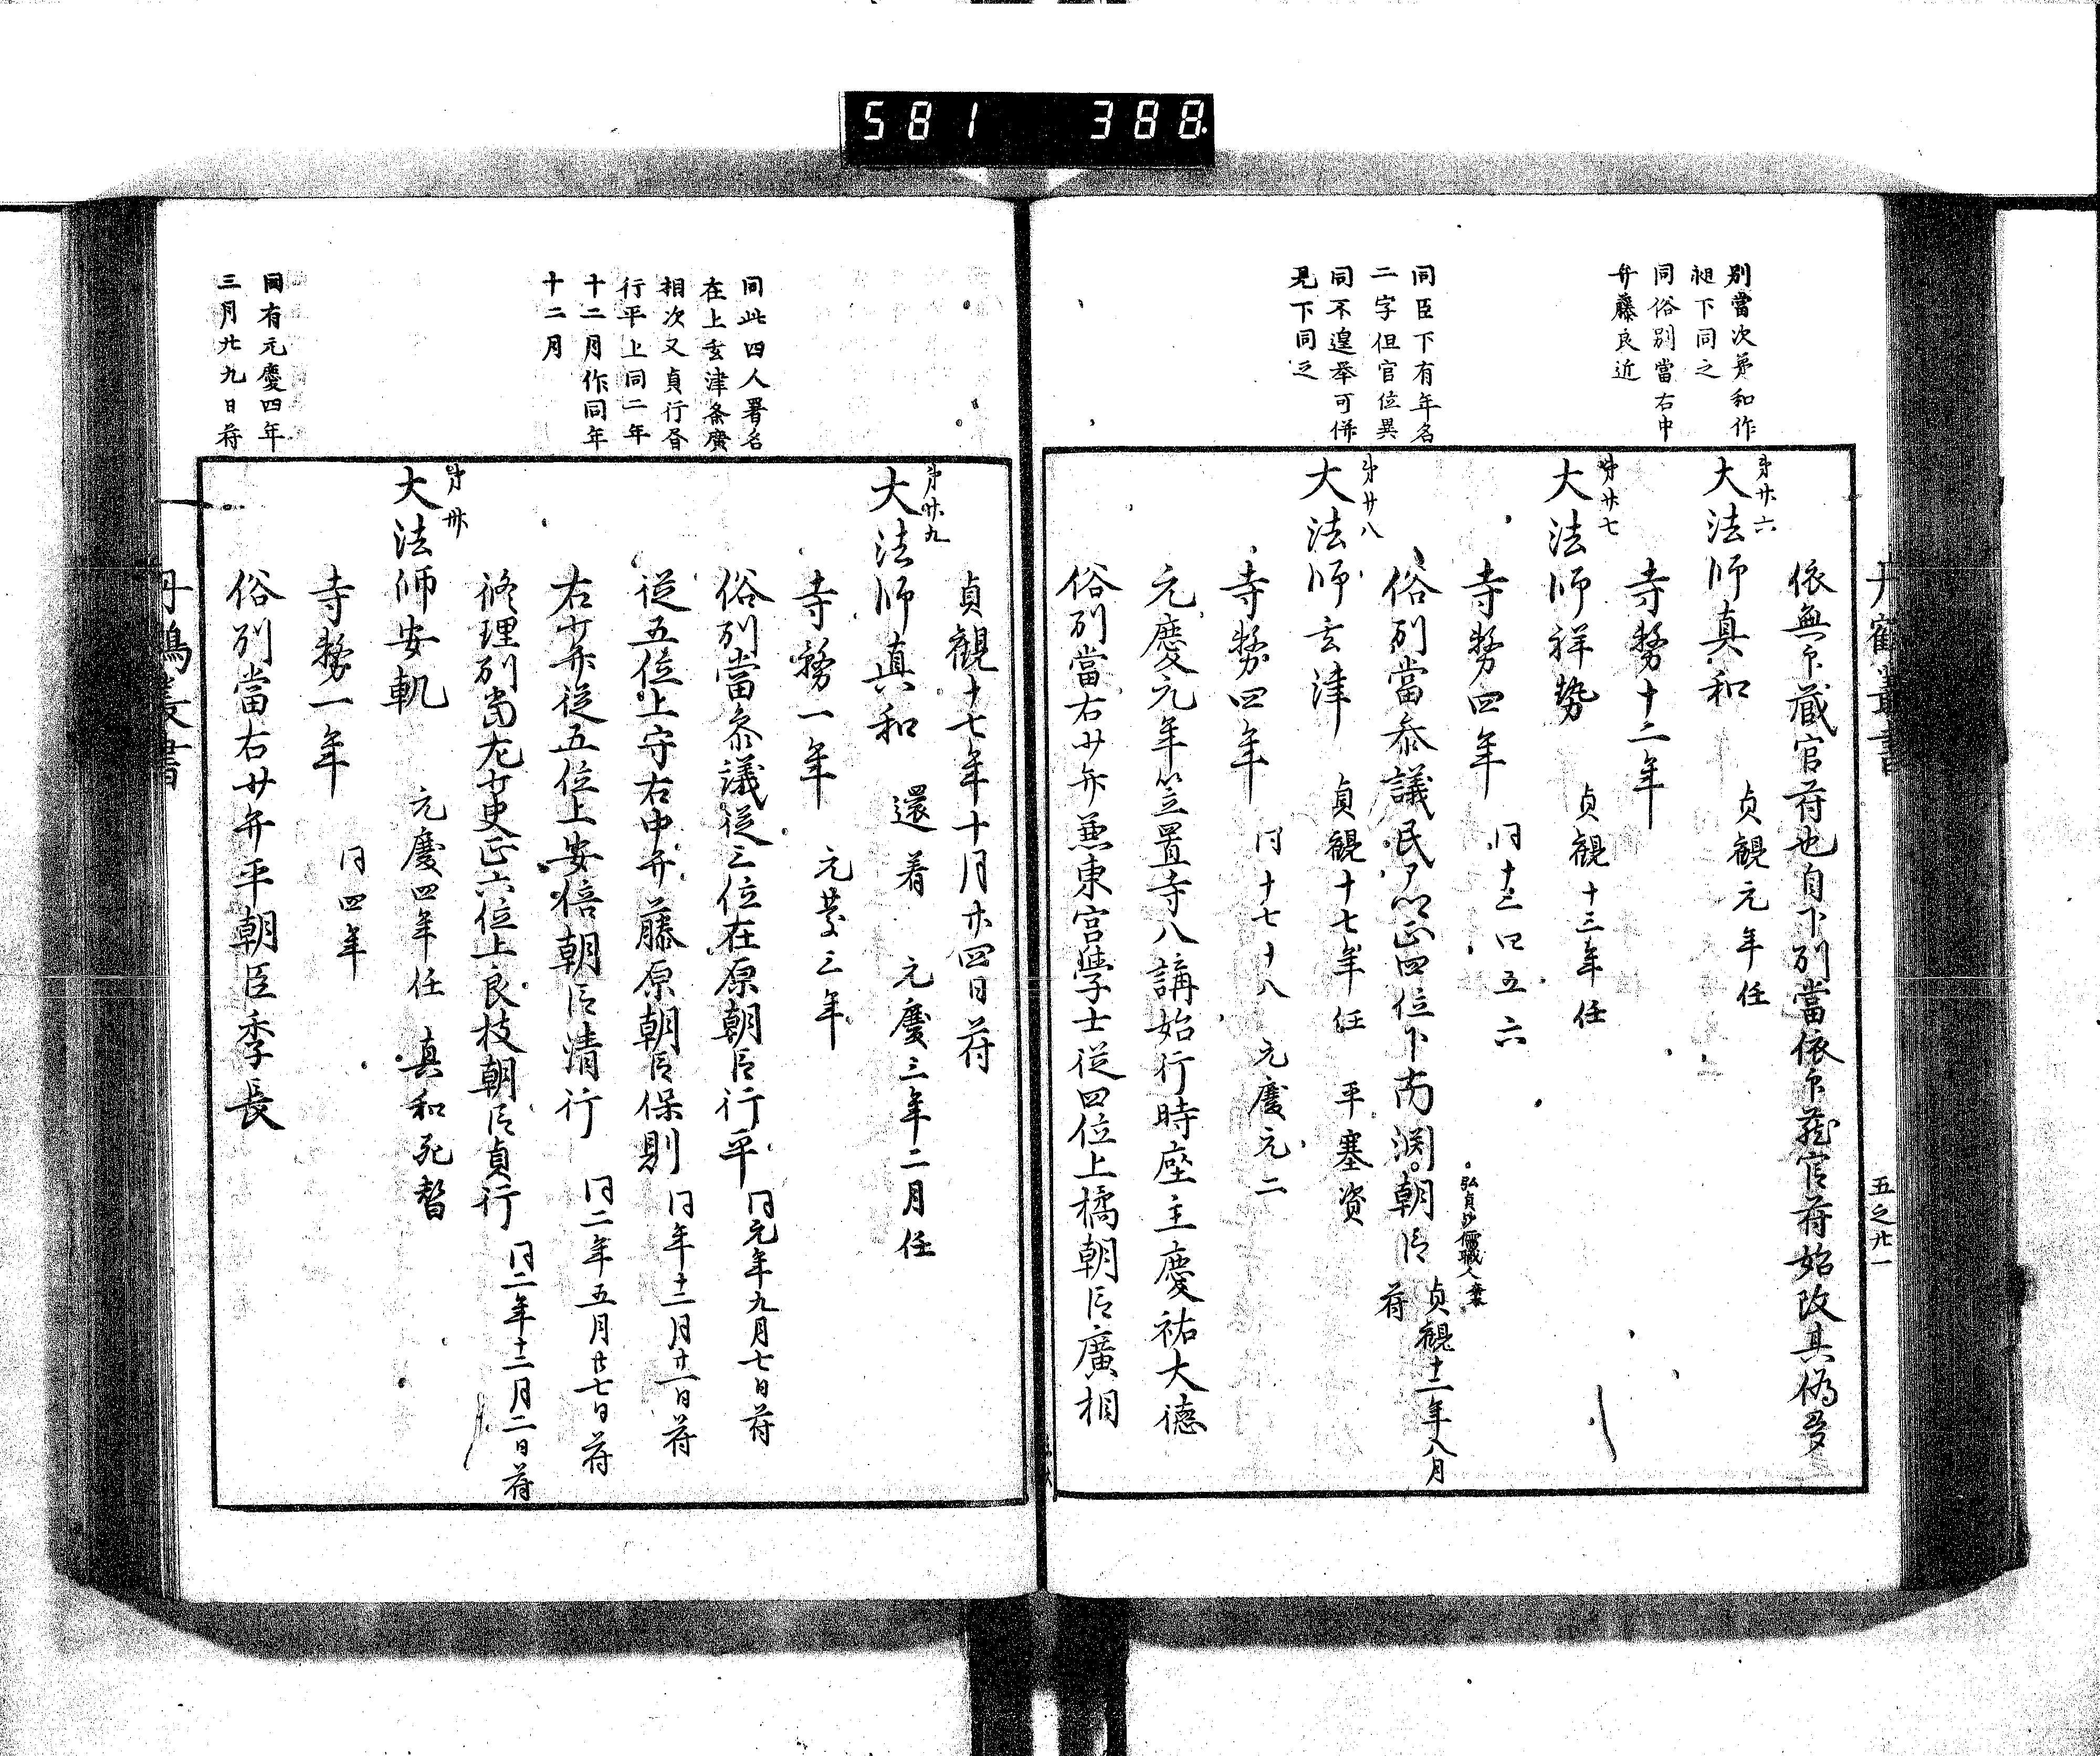 581 388
丹鶴叢書
五之廿一
別當次第和作
昶下同之
同俗別當右中
弁藤良近
同臣下有年名
二字但官位異
同不遑舉可併
見下同之
依無印藏官符也自下別當依印藏官符始改其偽多
第廿六
大法師真和 貞觀元年任
寺務十二年
第廿七
大法師祥勢 貞觀十三年任
寺務四年 同十三四五六
俗別當参議民了正四位下南淵朝臣
貞觀十二年八月
符
第廿八
大法師玄津 貞觀十七年任 平塞資
寺務四年 同十七十八 元慶元二
元慶元年笠置寺八講始行時座主慶祐大德
俗別當右少弁兼東宮學士從四位上橘朝臣廣相
同此四人署名
在上玄津条廣
相次又貞行昏
行平上同二年
十二月作同年
十二月
同有元慶四年
三月廿九日符
貞觀十七年十月廿四日符
第廿九
大法師真和 還着 元慶三年二月任
寺務一年 元慶三年
俗別當参議從三位在原朝臣行平 同元年九月七日符
從五位上守右中弁藤原朝臣保則 同年十二月廿一日符
右少弁從五位上安倍朝臣清行 同二年五月廿七日符
修理別当左少史正六位上良枝朝臣貞行 同二年十二月二日符
第卅
大法師安軌 元慶四年任 真和死替
寺務一年 同四年
俗別當右少弁平朝臣季長
丹鶴叢書